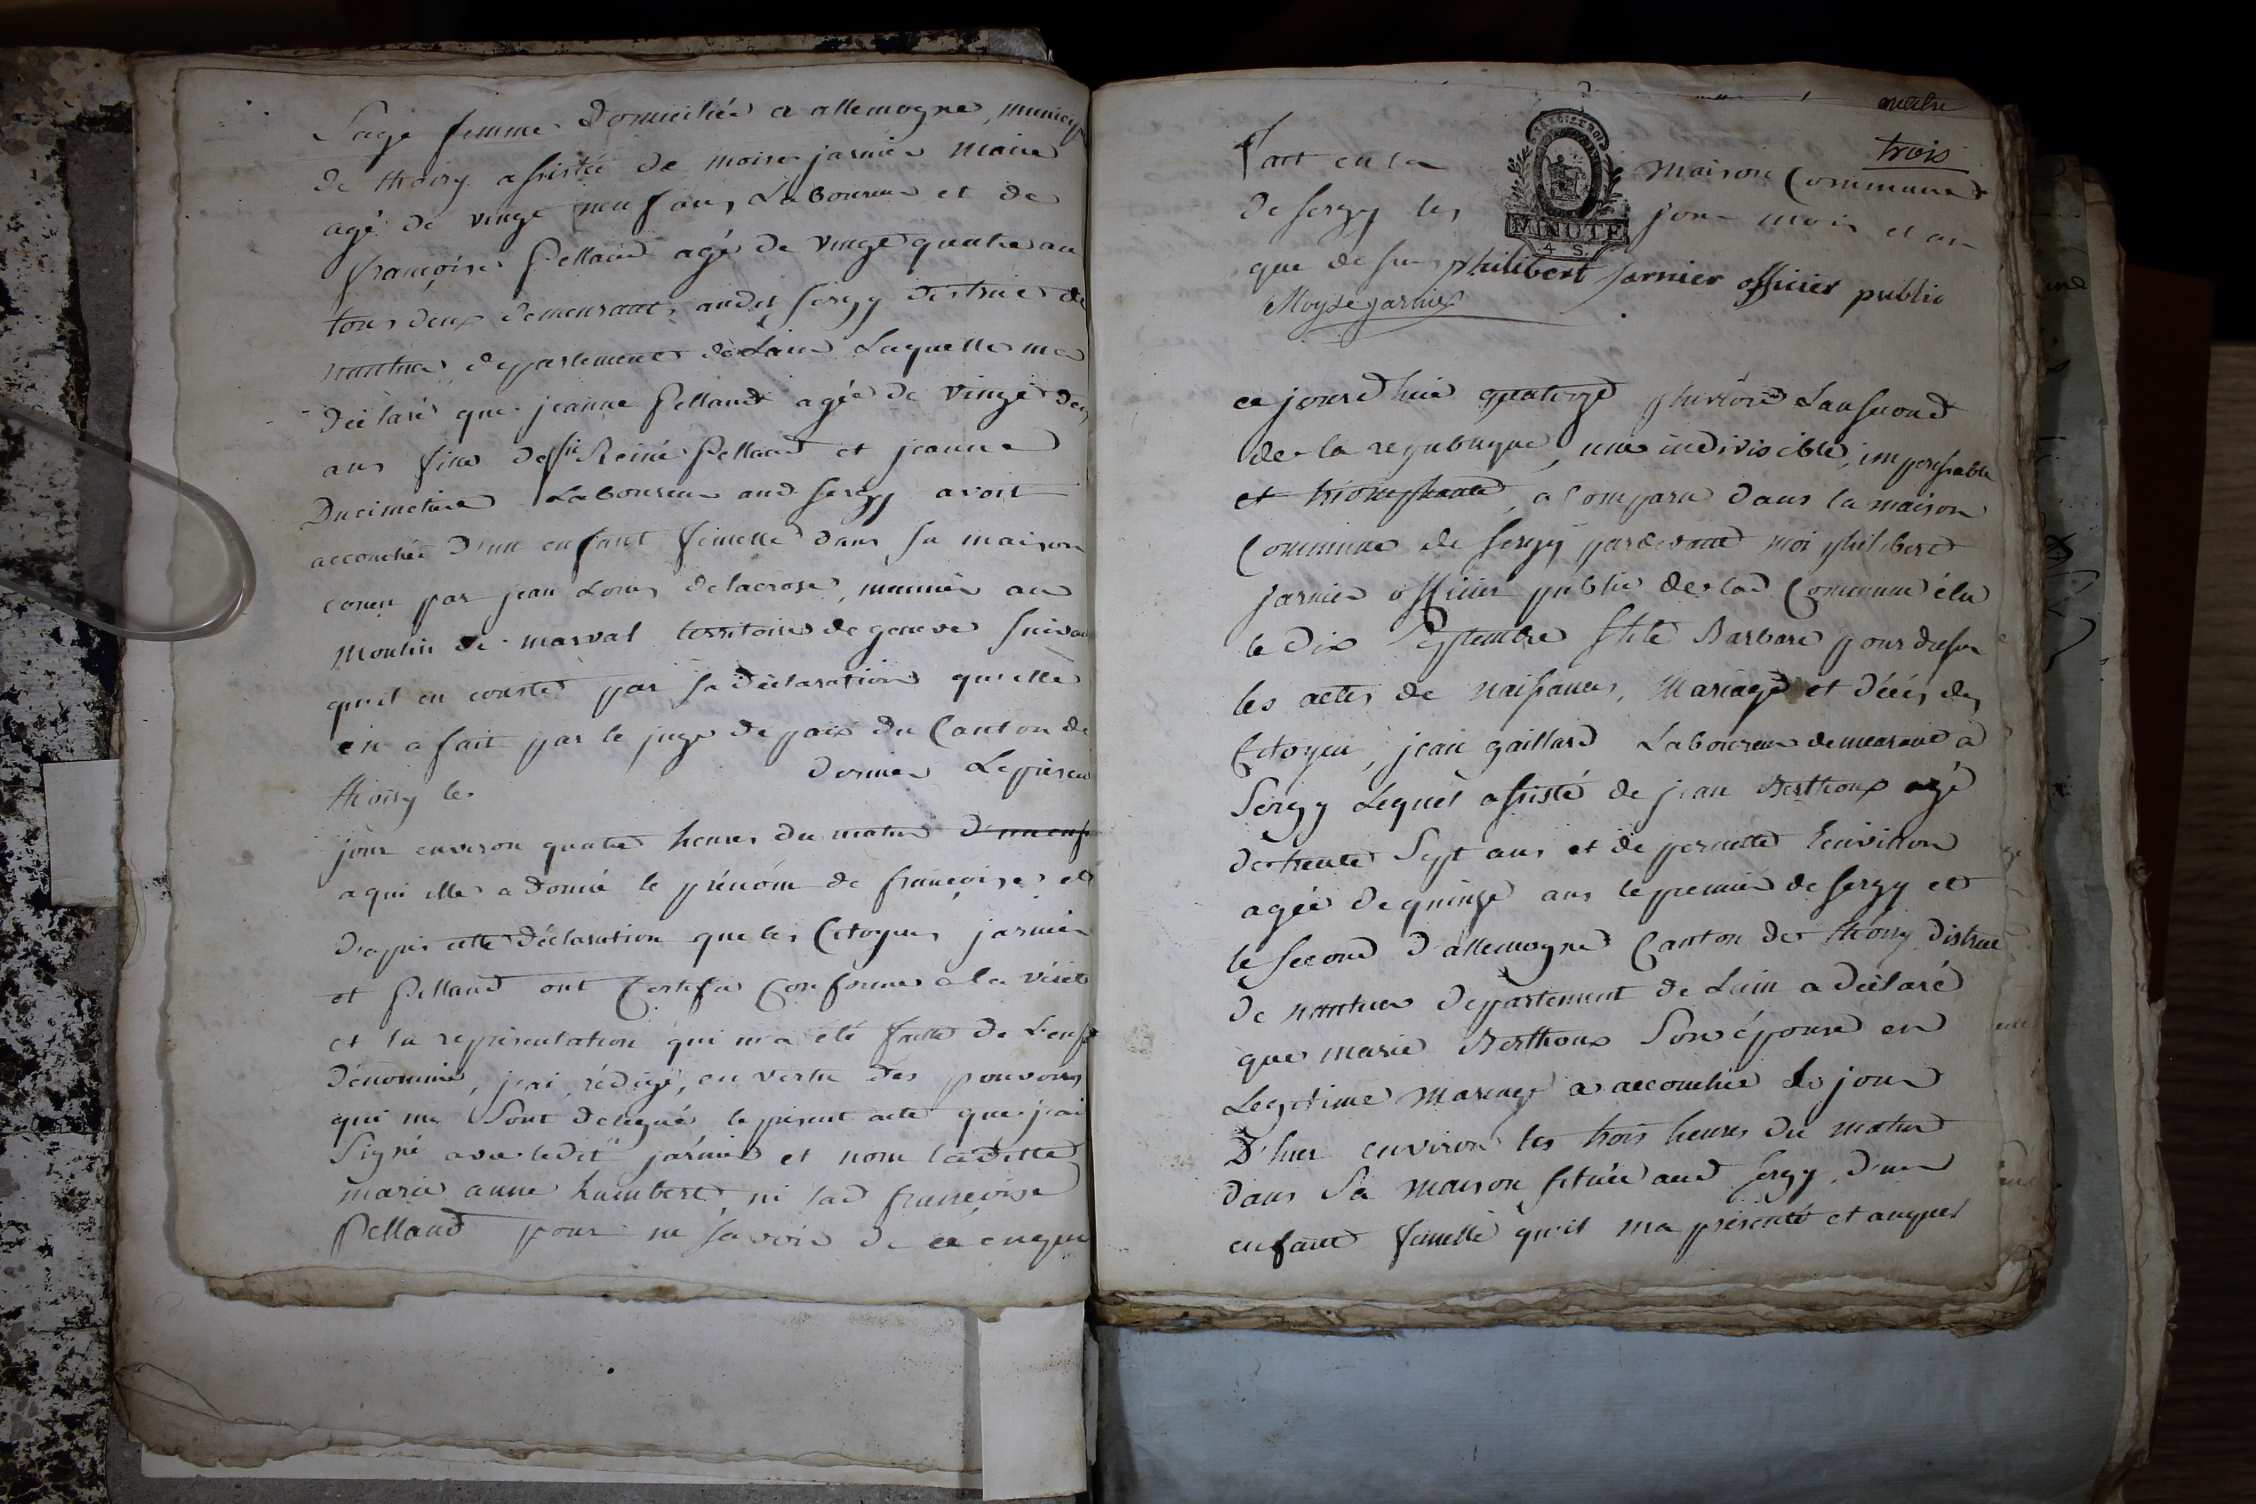 Sage femme Domiciliée a allemogne, municip
de thoiry assistée de moise jarnier maire
agé de vingt neuf ans, Laboureur et de
françoise Pelland agé de vingt quatre an
tous deux demeurant audit sergy district de
nantua, departement de Lain Laquelle ma
déclaré que jeanne Pelland agée de vingt deux
ans fille de feu Réiné Pelland et jeanne
Ducimetiere Laboureur aud sergy avoit
accouchée d'un enfant femelle dans sa maison
conçu par jean Louis delacrose, munier au
moulin de marval territoire de geneve suivan
quil en conste par sa déclaration quelle
en a fait par le juge de paix du Canton de
thoiry le dernier Le présent
jour environ quatre heures du matin
a qui elle a donné le prénom de françoise, et
d'apres cette déclaration que les Citoyens jarnier
et Pelland ont Certifié Conforme a la vérité
et la représentation qui m'a été faitte de L'enf
dénommé, j'ai rédigé, en vertu des pouvoirs
qui me Sont délégués le présent acte que j'ai
Signé avec ledit jarnier et nom ladette
marie anne humbert, ni lad francoise
Pelland pour ne savoir de ce enqui
trois
Fait en la maison Commune
de sergy les jour mois et an
MINUTE
4 S
que dessus philibert jarnier officier public
Moyse jarnier
ce jourd'hui quatorze pluviôse Lan second
de la republique, une indivisible, imperissable
et triomphante, a Comparu dans la maison
Commune de sergy pardevant moi philibert
jarnier officier public de lad Commune élu
le dix Septembre Stile Barbare pour dresser
les actes de naissances, Mariage et décès des
Citoyen, jean gaillard Laboureur demeurant a
Sergy Lequel assisté de jean Berthoux agé
de trente Sept ans et de pernette
agée de quinze ans le premier de sergy et
le second d'allemogne Canton de thoiry district
de nantua departement de Lain a déclaré
que marie Berthoux Son épouse en
Legitime mariage a accouchée le jour
D'hier environ les trois heures du matin
dans Sa maison située aud sergy, d'un
enfant femelle qu'il ma présenté et auquel